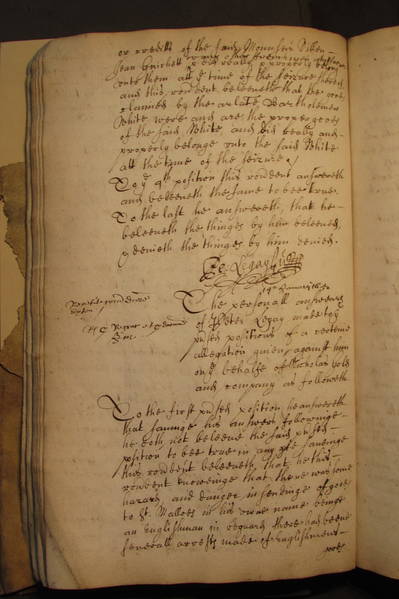 or credits of the said Mounseir
Jean
onto them att ye time of the seizure
and this rendent beleeveth that the goods
claimed by the arlate Bartholomew
White were and are the proper goods
of the said White, and did really and
properly belonge unto the said White
att the time of the seizure./
To ye 9th position this rendent answereth
and beleeveth the same to bee true.
To the last he answereth, that he
beleeveth the thinges by him beleeved,
& denieth the thinges by him denied.
Pe: Legay
The personall answeares
of Peter Legay made to ye
positions of a certeine
allegation given against him
on ye behalfe of Nicholas
and company as followeth
To the first position he answereth
That saveinge his answeres followinge
he doth not beleeve the said
position to bee true in any
this rendent beleeveth, that he this
rendent knoweinge that there was some
hazard, and danger in sendinge of goods
to St. Malloes in his owne name beinge
an Englishman in regard there had beene
severall arrests made of Englishmens
goods